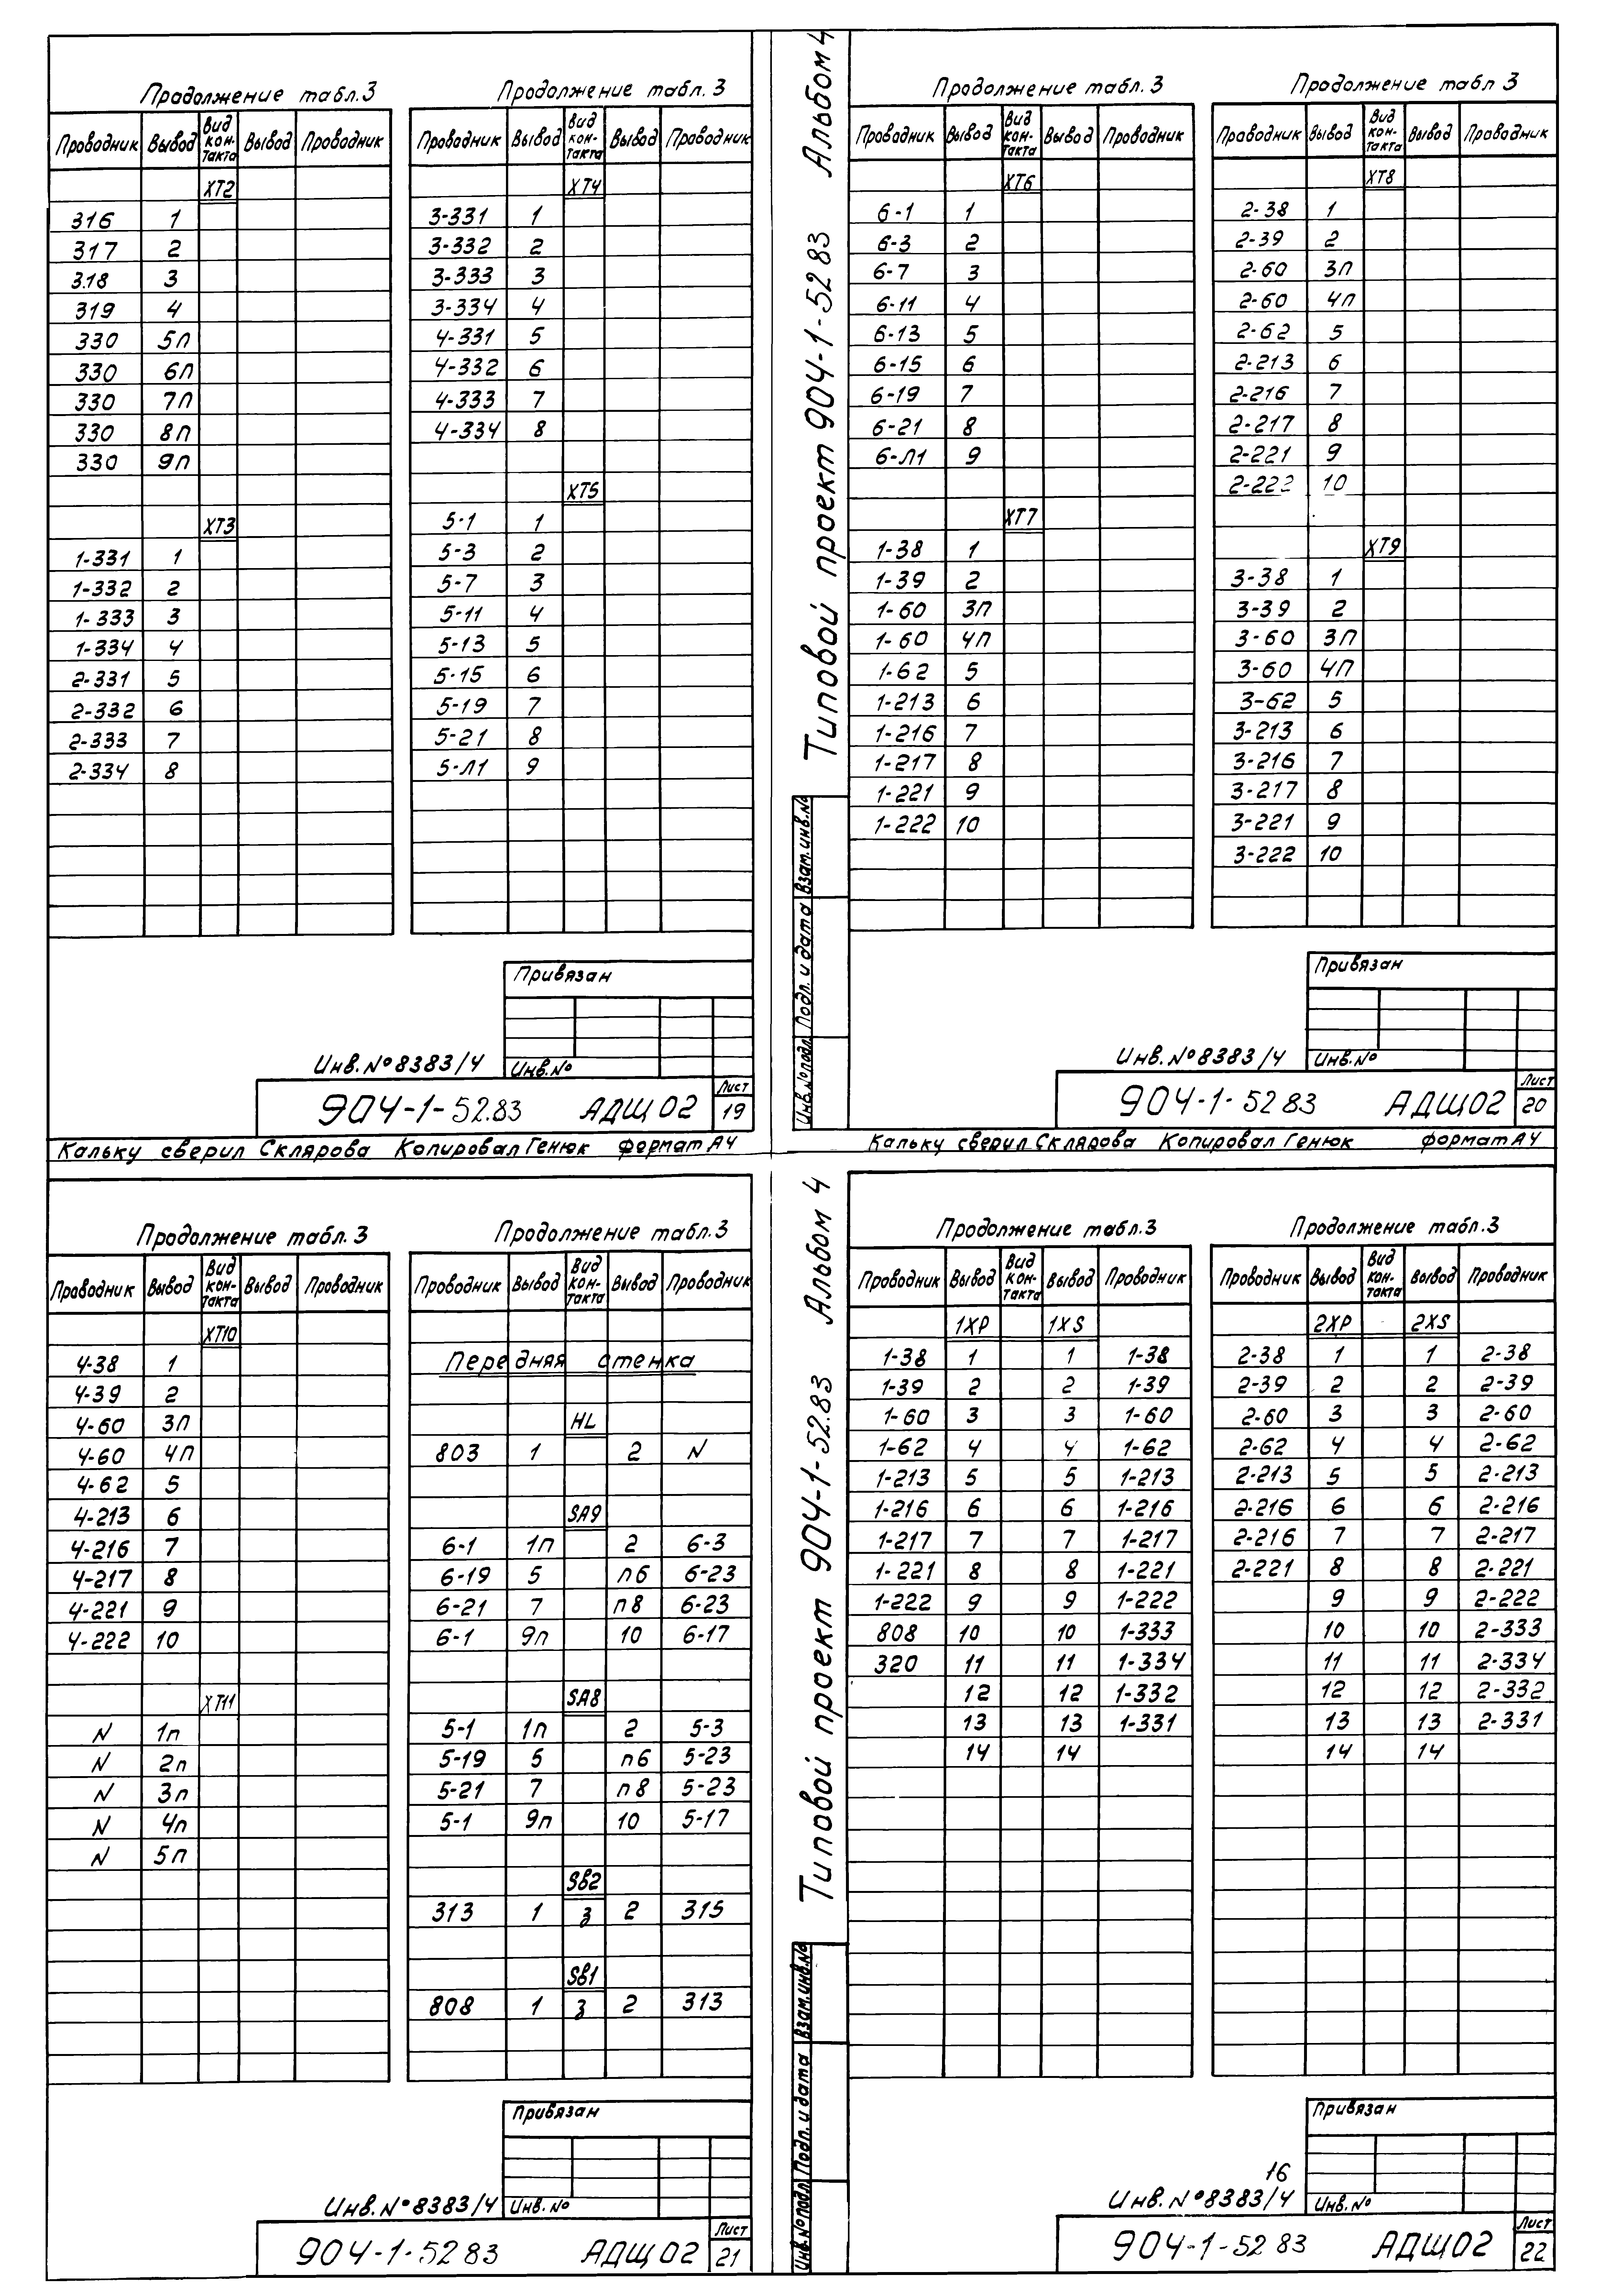 Продолжение табл.3
Проводник Вывод Вид кон-такта Вывод Проводник
XT2
316 1
317 2
318 3
319 4
330 5п
330 6п
330 7п
330 8п
330 9п
XT3
1-331 1
1-332 2
1-333 3
1-334 4
2-331 5
2-332 6
2-333 7
2-334 8
Продолжение табл.3
Проводник Вывод Вид кон-такта Вывод Проводник
XT4
3-331 1
3-332 2
3-333 3
3-334 4
4-331 5
4-332 6
4-333 7
4-334 8
XT5
5-1 1
5-3 2
5-7 3
5-11 4
5-13 5
5-15 6
5-19 7
5-21 8
5-Л1 9
Привязан
Инв.№8383/4 Инв.№
904-1-52.83 АДЩ02 Лист 19
Кальку сверил Склярова Копировал Генюк формат А4
Типовой проект 904-1-52 83 Альбом 4
Инв.№подл. Подп. и дата Взам.инв.№
Продолжение табл.3
Проводник Вывод Вид кон-такта Вывод Проводник
XT6
6-1 1
6-3 2
6-7 3
6-11 4
6-13 5
6-15 6
6-19 7
6-21 8
6-Л1 9
XT7
1-38 1
1-39 2
1-60 3п
1-60 4п
1-62 5
1-213 6
1-216 7
1-217 8
1-221 9
1-222 10
Продолжение табл 3
Проводник Вывод Вид кон-такта Вывод Проводник
XT8
2-38 1
2-39 2
2-60 3п
2-60 4п
2-62 5
2-213 6
2-216 7
2-217 8
2-221 9
2-222 10
XT9
3-38 1
3-39 2
3-60 3п
3-60 4п
3-62 5
3-213 6
3-216 7
3-217 8
3-221 9
3-222 10
Привязан
Инв.№8383/4 Инв.№
904-1-52 83 АДЩ02 Лист 20
Кальку сверил Склярова Копировал Генюк формат А4
Продолжение табл.3
Проводник Вывод Вид кон-такта Вывод Проводник
XT10
4-38 1
4-39 2
4-60 3п
4-60 4п
4-62 5
4-213 6
4-216 7
4-217 8
4-221 9
4-222 10
XT11
N 1п
N 2п
N 3п
N 4п
N 5п
Продолжение табл.3
Проводник Вывод Вид кон-такта Вывод Проводник
Передняя стенка
HL
803 1 2 N
SA9
6-1 1п 2 6-3
6-19 5 п6 6-23
6-21 7 п8 6-23
6-1 9п 10 6-17
SA8
5-1 1п 2 5-3
5-19 5 п6 5-23
5-21 7 п8 5-23
5-1 9п 10 5-17
SB2
313 1 з 2 315
SB1
808 1 з 2 313
Привязан
Инв.№8383/4 Инв.№
904-1-52 83 АДЩ02 Лист 21
Типовой проект 904-1-52.83 Альбом 4
Инв.№подл. Подп. и дата Взам.инв.№
Продолжение табл.3
Проводник Вывод Вид кон-такта Вывод Проводник
1XP 1XS
1-38 1 1 1-38
1-39 2 2 1-39
1-60 3 3 1-60
1-62 4 4 1-62
1-213 5 5 1-213
1-216 6 6 1-216
1-217 7 7 1-217
1-221 8 8 1-221
1-222 9 9 1-222
808 10 10 1-333
320 11 11 1-334
12 12 1-332
13 13 1-331
14 14
Продолжение табл.3
Проводник Вывод Вид кон-такта Вывод Проводник
2XP 2XS
2-38 1 1 2-38
2-39 2 2 2-39
2-60 3 3 2-60
2-62 4 4 2-62
2-213 5 5 2-213
2-216 6 6 2-216
2-216 7 7 2-217
2-221 8 8 2-221
9 9 2-222
10 10 2-333
11 11 2-334
12 12 2-332
13 13 2-331
14 14
Привязан
16
Инв.№8383/4 Инв.№
904-1-52 83 АДЩ02 Лист 22